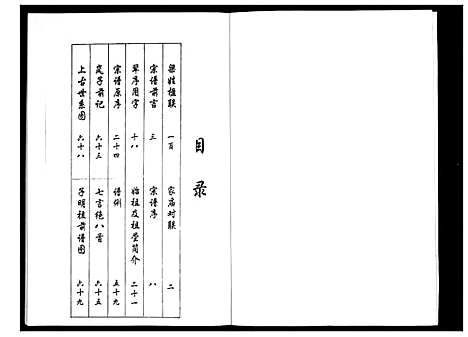 目录
梁姓楹联 一百 家庙对联 二
宗谱前言 三 宗谱序 八
辈序用字 十八 始祖及祖茔简介 二十一
宗谱原序 二十四 谱例 五十九
前记 六十三 七言绝八首 六十五
上古世系图 六十八 子明祖前谱图 六十九